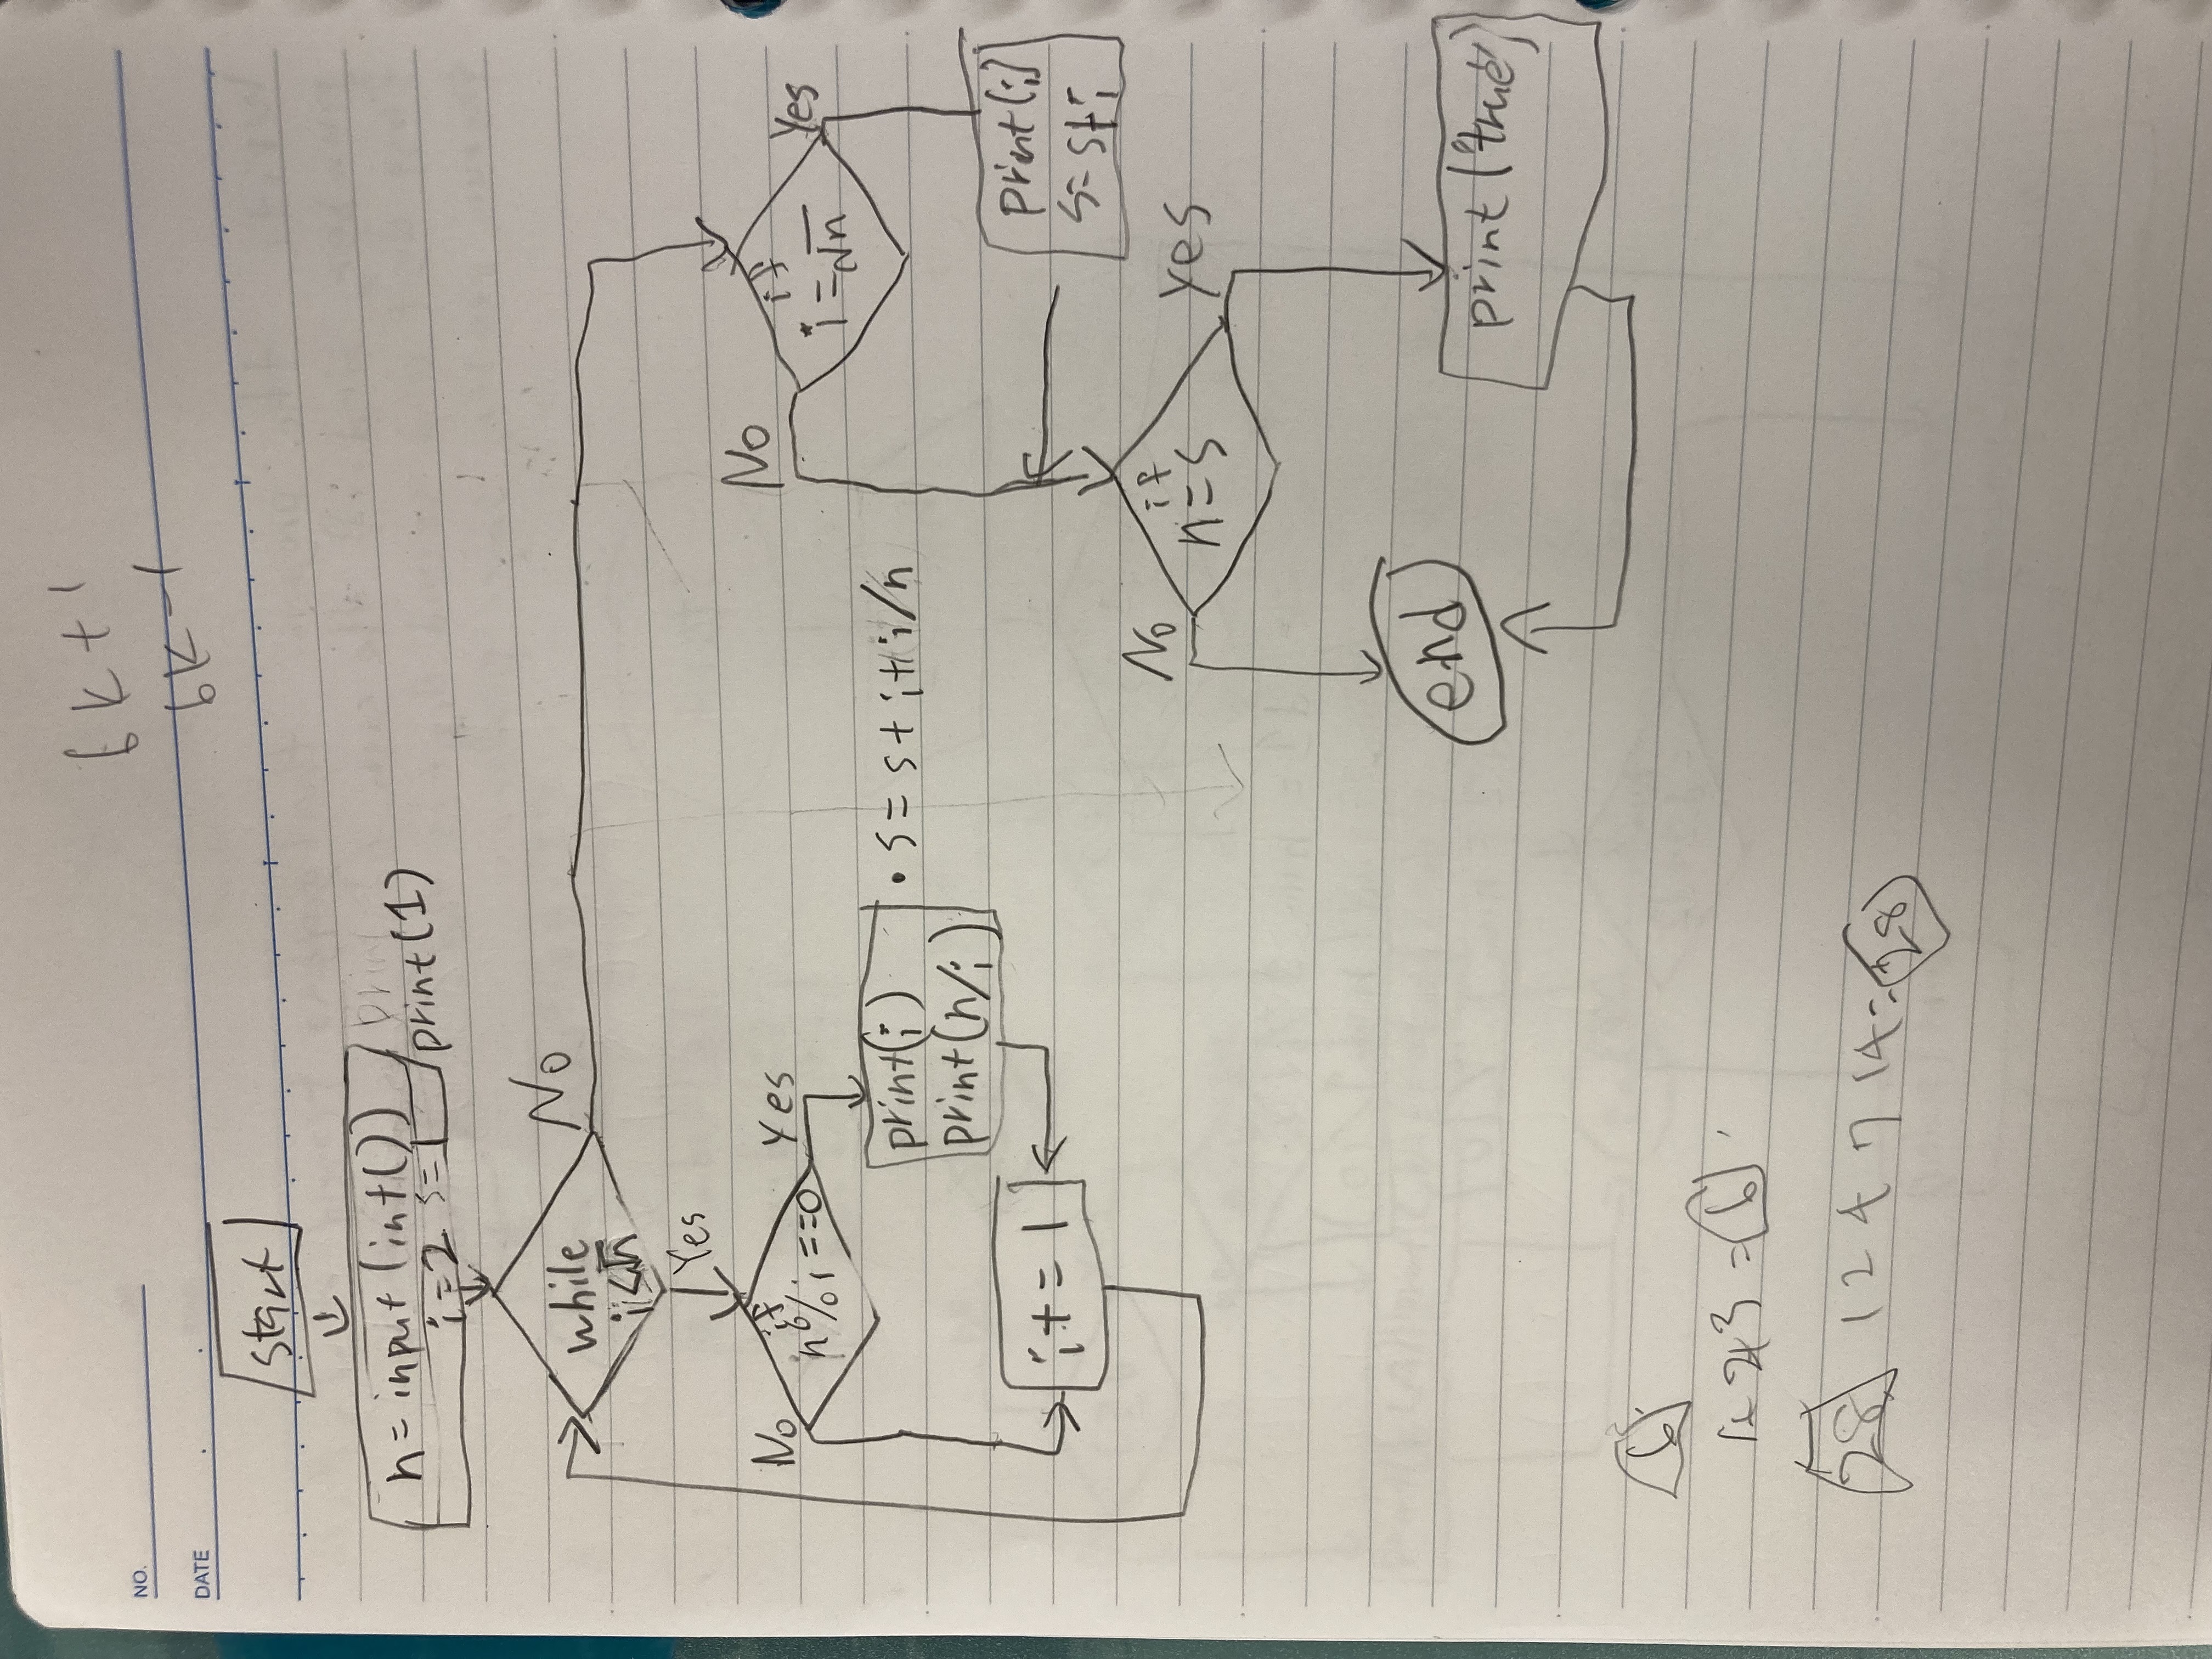 6k+1
6k-1
NO.
DATE
start
n=input(int())
i=2 s=1
print(1)
while
i≤√n
No
Yes
if
n%i==0
No
Yes
print(i)
print(n/i)
• s=s+i+i/n
i+=1
if
i=√n
No
Yes
print(i)
s=s+i
if
n=s
No
yes
end
print('true')
6
1+2+3=6
28 1 2 4 7 14=28